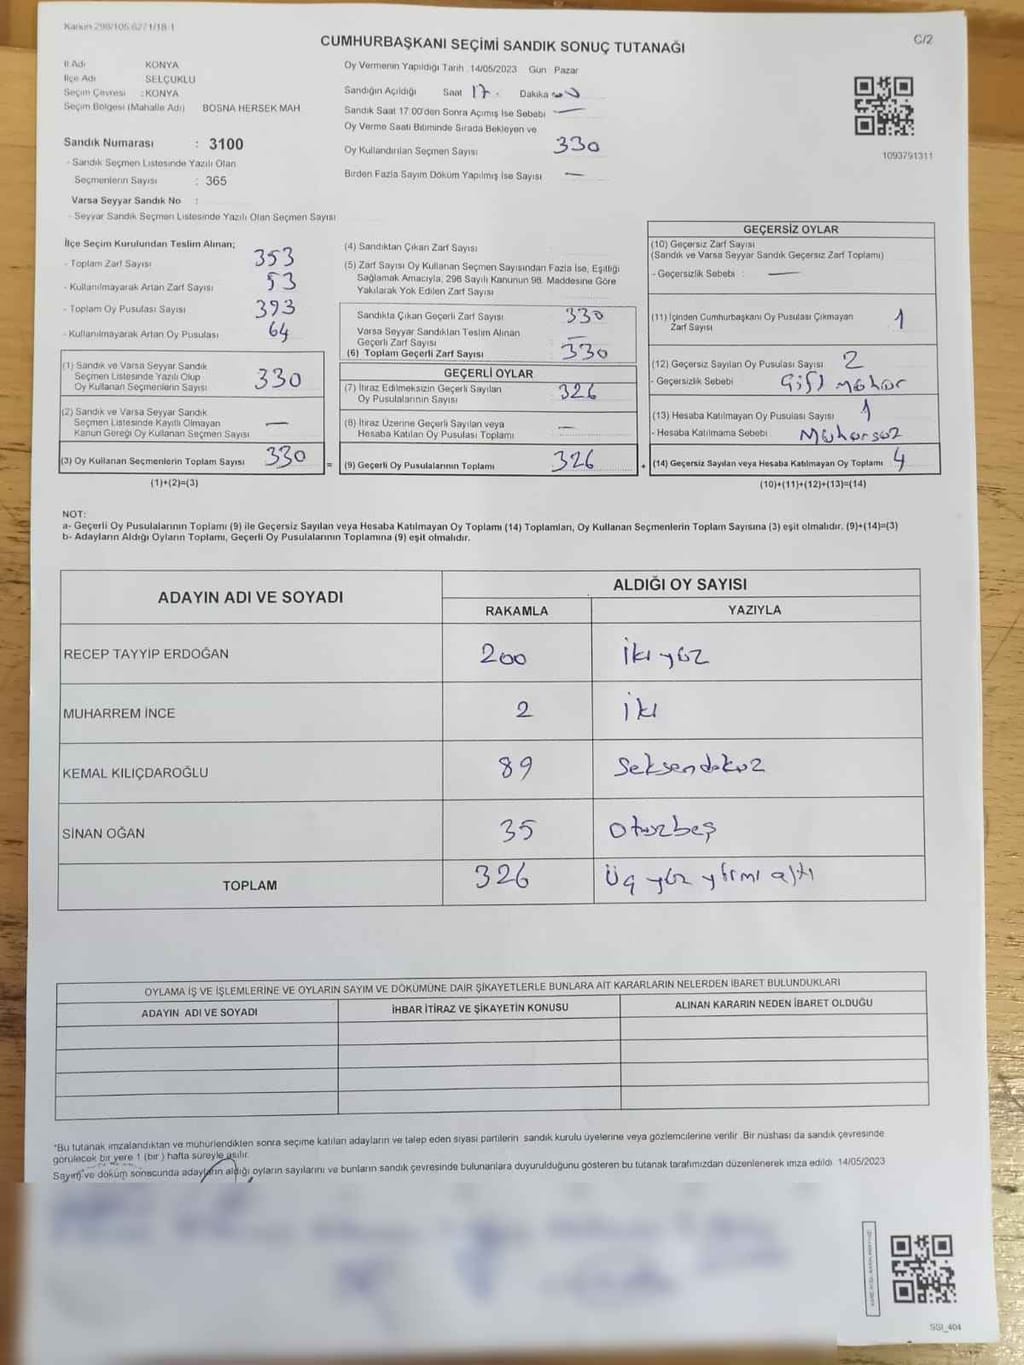 Kanun 298/105,627 1/18-1
C/2
CUMHURBAŞKANI SEÇİMİ SANDIK SONUÇ TUTANAĞI
İl Adı KONYA
İlçe Adı SELÇUKLU
Seçim Çevresi :KONYA
Seçim Bölgesi (Mahalle Adı) BOSNA HERSEK MAH
Sandık Numarası : 3100
- Sandık Seçmen Listesinde Yazılı Olan
Seçmenlerin Sayısı : 365
Varsa Seyyar Sandık No :
- Seyyar Sandık Seçmen Listesinde Yazılı Olan Seçmen Sayısı
Oy Vermenin Yapıldığı Tarih 14/05/2023 Gün Pazar
Sandığın Açıldığı Saat 17 Dakika 00
Sandık Saat 17:00'den Sonra Açımış İse Sebebi —
Oy Verme Saati Bitiminde Sırada Bekleyen ve
Oy Kullandırılan Seçmen Sayısı 330
Birden Fazla Sayım Döküm Yapılmış İse Sayısı —
1093791311
İlçe Seçim Kurulundan Teslim Alınan;
- Toplam Zarf Sayısı 353
- Kullanılmayarak Artan Zarf Sayısı 53
- Toplam Oy Pusulası Sayısı 393
- Kullanılmayarak Artan Oy Pusulası 64
(1) Sandık ve Varsa Seyyar Sandık
Seçmen Listesinde Yazılı Olup
Oy Kullanan Seçmenlerin Sayısı 330
(2) Sandık ve Varsa Seyyar Sandık
Seçmen Listesinde Kayıtlı Olmayan
Kanun Gereği Oy Kullanan Seçmen Sayısı —
(3) Oy Kullanan Seçmenlerin Toplam Sayısı 330
(1)+(2)=(3)
(4) Sandıktan Çıkan Zarf Sayısı
(5) Zarf Sayısı Oy Kullanan Seçmen Sayısından Fazla İse, Eşitliği
Sağlamak Amacıyla, 298 Sayılı Kanunun 98. Maddesine Göre
Yakılarak Yok Edilen Zarf Sayısı
Sandıkta Çıkan Geçerli Zarf Sayısı 330
Varsa Seyyar Sandıktan Teslim Alınan
Geçerli Zarf Sayısı —
(6) Toplam Geçerli Zarf Sayısı 330
GEÇERLİ OYLAR
(7) İtiraz Edilmeksizin Geçerli Sayılan
Oy Pusulalarının Sayısı 326
(8) İtiraz Üzerine Geçerli Sayılan veya
Hesaba Katılan Oy Pusulası Toplamı —
= (9) Geçerli Oy Pusulalarının Toplamı 326
GEÇERSİZ OYLAR
(10) Geçersiz Zarf Sayısı
(Sandık ve Varsa Seyyar Sandık Geçersiz Zarf Toplamı)
- Geçersizlik Sebebi : —
(11) İçinden Cumhurbaşkanı Oy Pusulası Çıkmayan
Zarf Sayısı 1
(12) Geçersiz Sayılan Oy Pusulası Sayısı 2
- Geçersizlik Sebebi Çift Mühür
(13) Hesaba Katılmayan Oy Pusulası Sayısı 1
- Hesaba Katılmama Sebebi Mühürsüz
+ (14) Geçersiz Sayılan veya Hesaba Katılmayan Oy Toplamı 4
(10)+(11)+(12)+(13)=(14)
NOT:
a- Geçerli Oy Pusulalarının Toplamı (9) ile Geçersiz Sayılan veya Hesaba Katılmayan Oy Toplamı (14) Toplamları, Oy Kullanan Seçmenlerin Toplam Sayısına (3) eşit olmalıdır. (9)+(14)=(3)
b- Adayların Aldığı Oyların Toplamı, Geçerli Oy Pusulalarının Toplamına (9) eşit olmalıdır.
ADAYIN ADI VE SOYADI
ALDIĞI OY SAYISI
RAKAMLA YAZIYLA
RECEP TAYYİP ERDOĞAN 200 İki yüz
MUHARREM İNCE 2 İki
KEMAL KILIÇDAROĞLU 89 Seksendokuz
SİNAN OĞAN 35 Otuzbeş
TOPLAM 326 Üç yüz yirmi altı
OYLAMA İŞ VE İŞLEMLERİNE VE OYLARIN SAYIM VE DÖKÜMÜNE DAİR ŞİKAYETLERLE BUNLARA AİT KARARLARIN NELERDEN İBARET BULUNDUKLARI
ADAYIN ADI VE SOYADI İHBAR İTİRAZ VE ŞİKAYETİN KONUSU ALINAN KARARIN NEDEN İBARET OLDUĞU
*Bu tutanak imzalandıktan ve mühürlendikten sonra seçime katılan adayların ve talep eden siyasi partilerin sandık kurulu üyelerine veya gözlemcilerine verilir. Bir nüshası da sandık çevresinde
görülecek bir yere 1 (bir) hafta süreyle asılır.
Sayım ve döküm sonucunda adayların aldığı oyların sayılarını ve bunların sandık çevresinde bulunanlara duyurulduğunu gösteren bu tutanak tarafımızdan düzenlenerek imza edildi. 14/05/2023
SGI_404